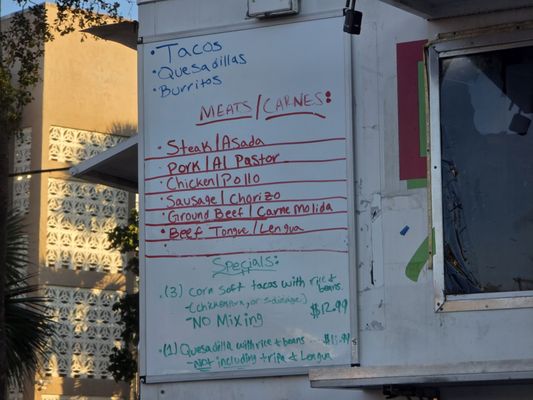 • Tacos
• Quesadillas
• Burritos
MEATS/CARNES:
• Steak/Asada
• Pork/Al Pastor
• Chicken/Pollo
• Sausage/Chorizo
• Ground Beef/Carne Molida
• Beef Tongue/Lengua
Specials:
• (3) corn soft tacos with rice & beans
-(chicken, or
-NO Mixing $12.99
• (1) Quesadilla with rice & beans ... $11.99
-Not including tripa & Lengua